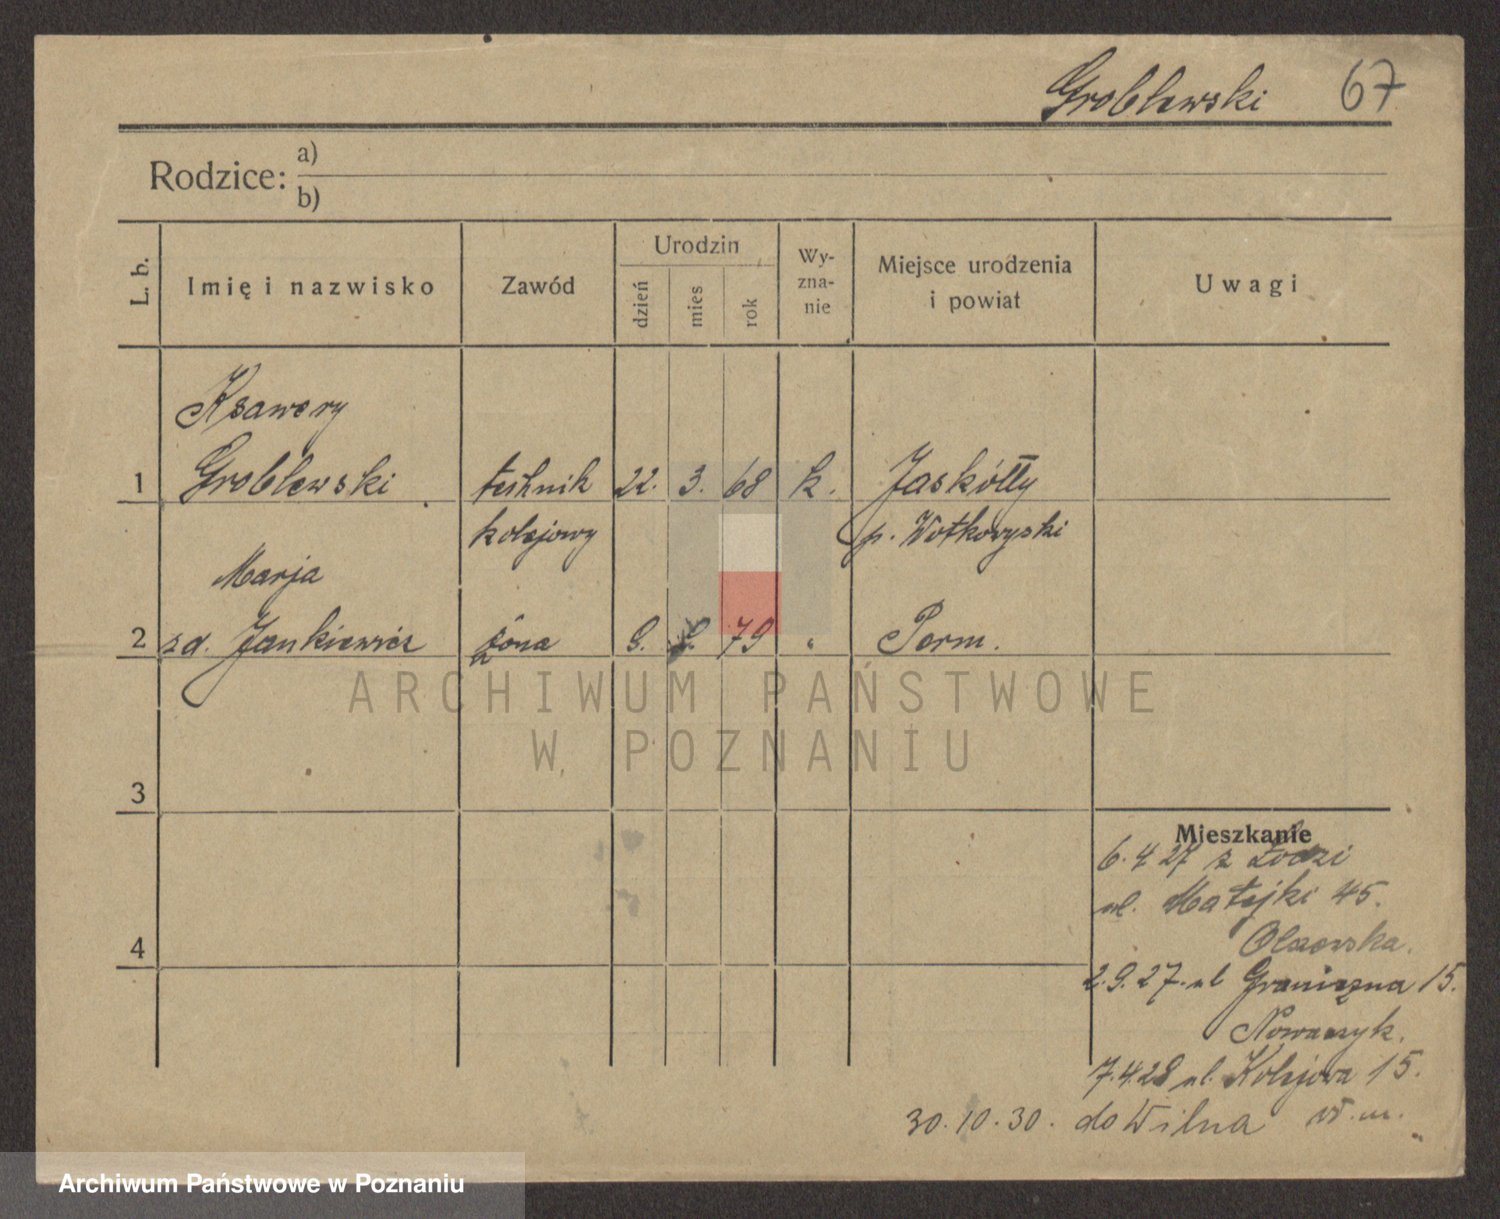 Groblewski 67
Rodzice: a)
b)
L. b.
Imię i nazwisko
Zawód
Urodzin
dzień
mies
rok
Wy-
zna-
nie
Miejsce urodzenia
i powiat
Uwagi
Ksawery
1 Groblewski technik 22. 3. 68 k. Jaskółły
kolejowy p. Wołkowyski
Marja
2 zd. Jankiewicz żona 9. 79 " Perm.
ARCHIWUM PAŃSTWOWE
W POZNANIU
3
Mieszkanie
6.4.27 z Łodzi
ul. Matejki 45.
4
Olszewska.
2.9.27. ul Graniczna 15.
Nowaczyk.
7.4.28 ul. Kolejowa 15.
30.10.30. do Wilna w. m.
Archiwum Państwowe w Poznaniu